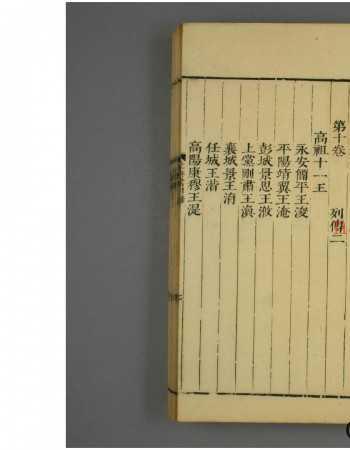 第十卷 列傳二
高祖十一王
永安簡平王浚
平陽靖翼王淹
彭城景思王浟
上黨剛肅王渙
襄城景王淯
任城王湝
高陽康穆王湜